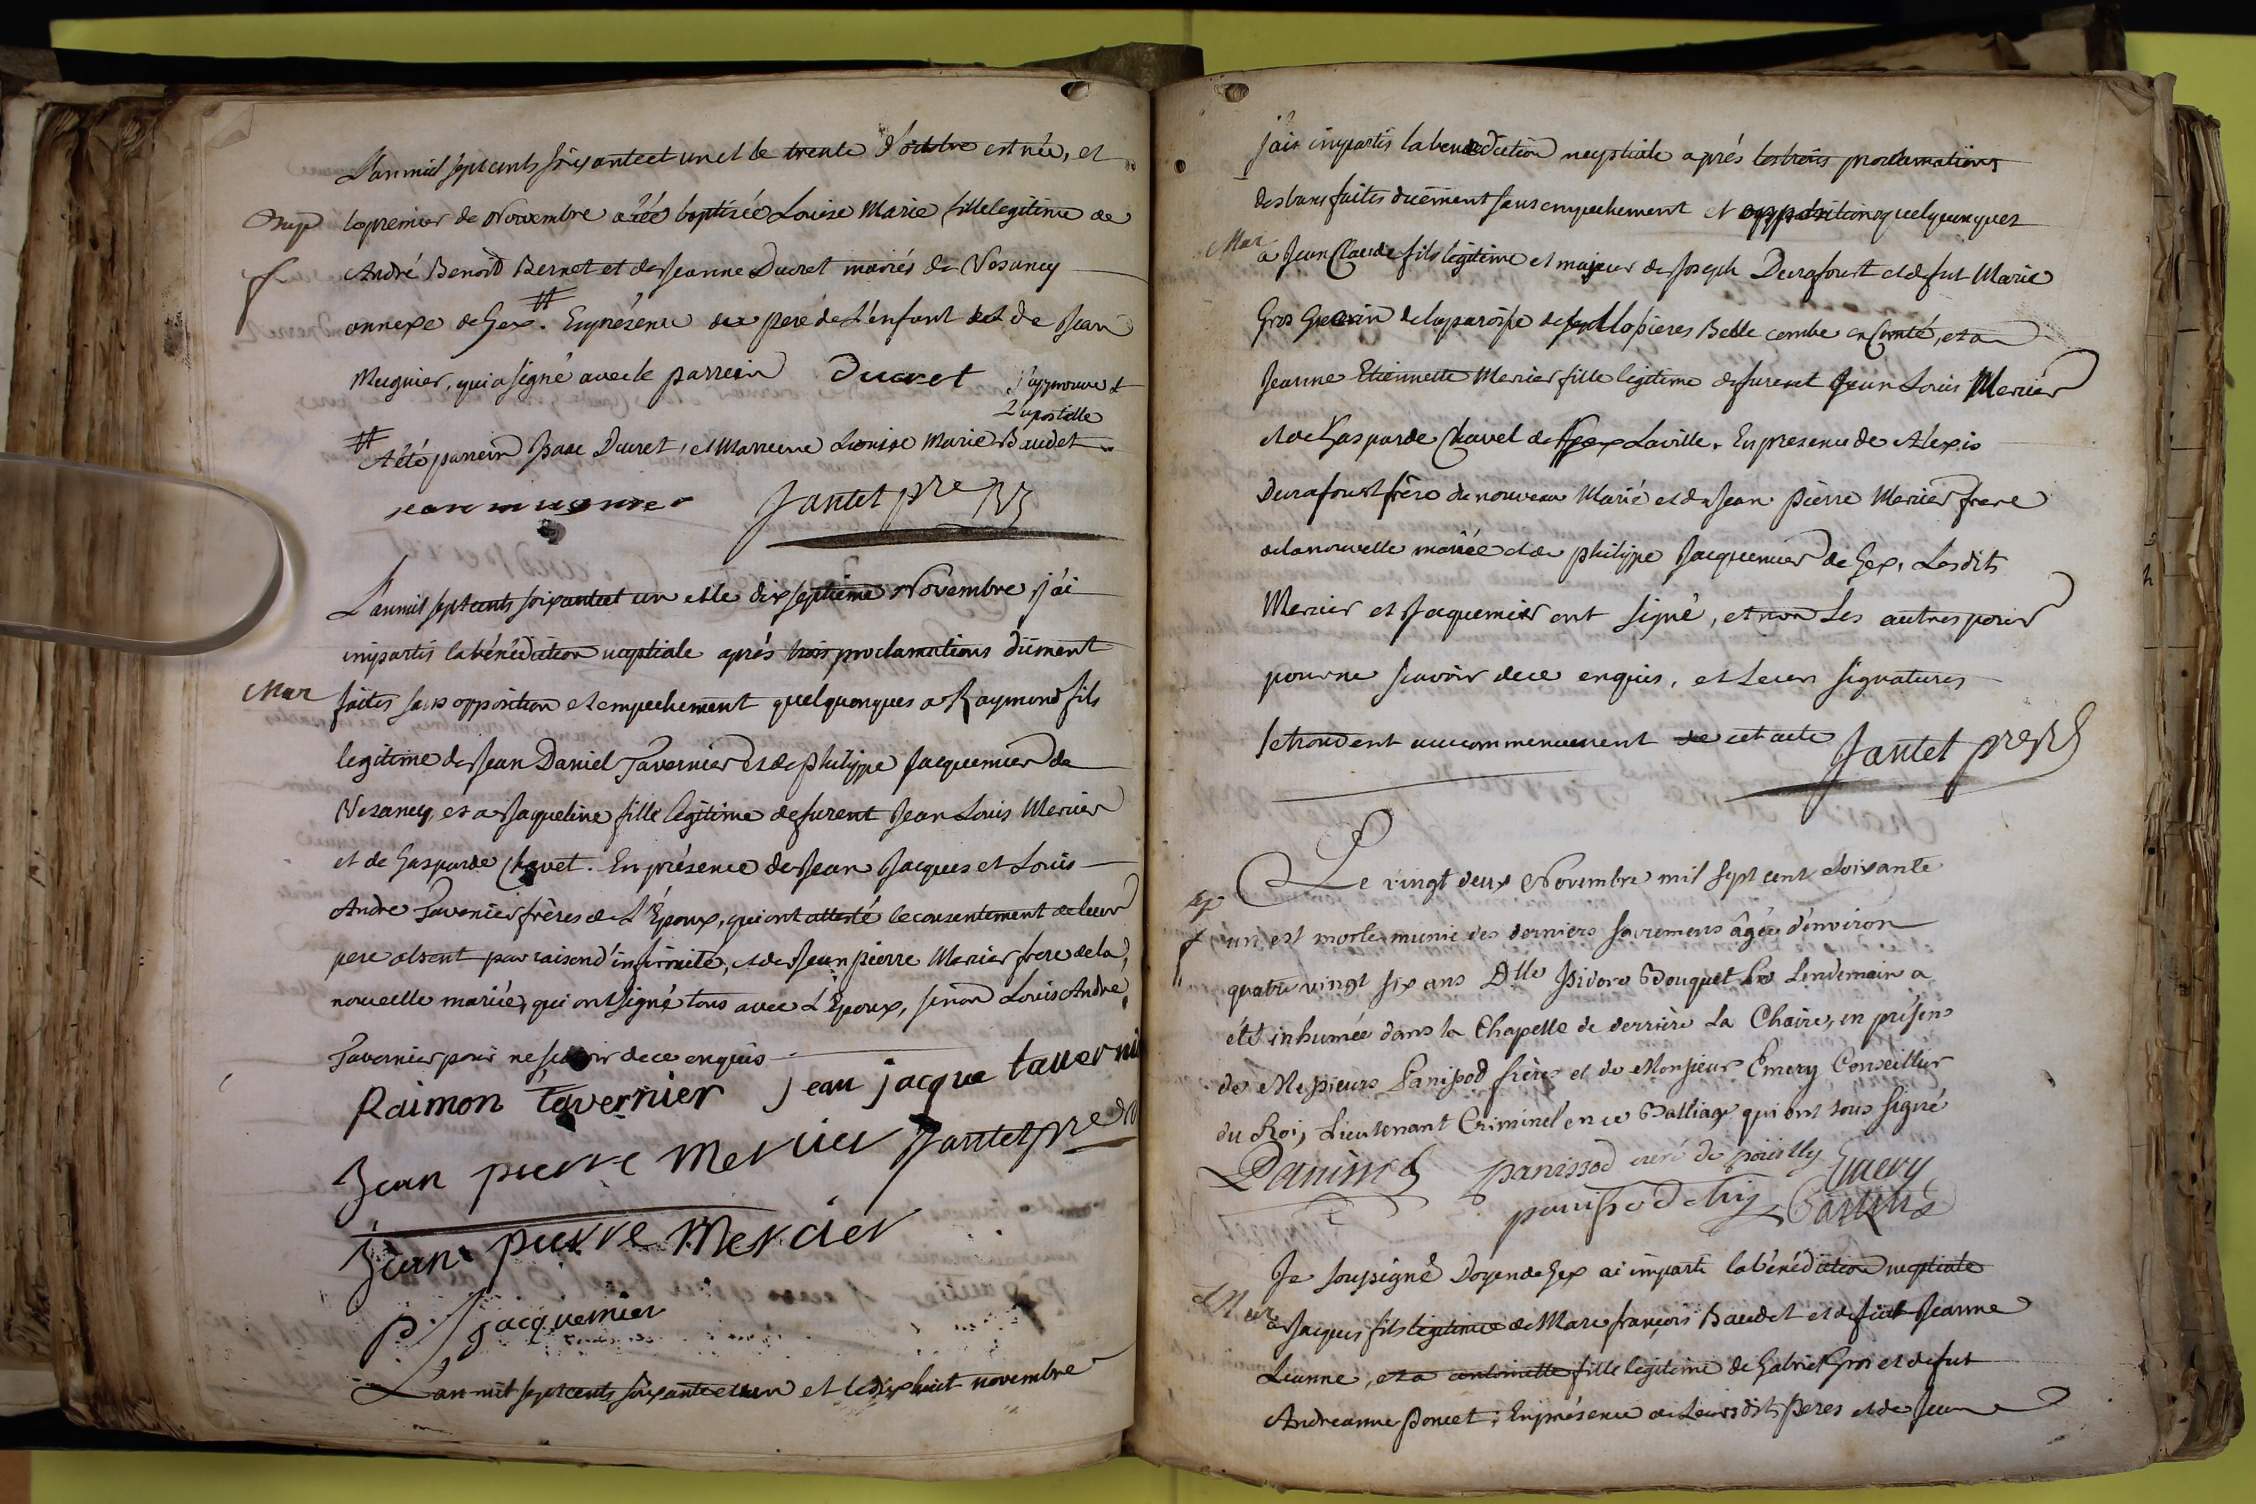 L'an mil sept cents soixante et un et le trente d'octobre est née, et
Bap
le premier de Novembre a été baptisée Louise Marie fille legitime de
f
André Benoit Bernet et de Jeanne Ducret mariés de Vesancy
annexe de Gex. # En présence du pere de L'enfant et de Jean
Mugnier, qui a signé avec le parrein Ducret J'approuve
L'apostille
# A été parrein Isaac Ducret, et Marreine Louise Marie Baudet
jean mugnier Jantet pre
L'an mil sept cents soixante et un et le dix septieme Novembre j'ai
imparti la bénédiction nuptiale aprés trois proclamations düment
Mar
faites sans opposition et empechement quelquonques a Raymond fils
legitime de Jean Daniel Tavernier et de philippe Jacquemier de
Vesancy, et a Jaqueline fille legitime de furent Jean Louis Mercier
et de Gasparde Chavet. En présence de Jean Jacques et Louis
André Tavernier frères de L'Epoux, qui ont attesté le consentement de leur
pere absent par raison d'infirmité, et de Jean pierre Mercier frere de la
nouvelle mariée, qui ont signé tous avec L'Epoux, sinon Louis André
Tavernier pour ne scavoir de ce enquis
Raimon tavernier jean jacque taverni
Jean pierre Mercier Jantet pre
Jean pierre Mercier
p j jacquemier
L'an mil sept cents soixante et un et le dix huit novembre
j'ai impartis la benediction nuptiale aprés les trois proclamations
des bans faites duëment sans empechement et opposition quelquonques
Mar
a Jean Claude fils legitime et majeur de Joseph Durafourt et de fut Marie
Gros de la paroisse de Belle combe en Comté, et a
Jeanne Etiennette Mercier fille legitime de furent Jean Louis Mercier
et de Gasparde Chavet de Gex Laville. En presence de Alexis
Durafourt frère du nouveau Marié et de Jean Pierre Mercier frere
de la nouvelle mariée et de philippe Jacquemier de Gex, Lesdits
Mercier et Jaquemier ont signé, et non Les autres pour
pour ne scavoir de ce enquis, et Leurs signatures
se trouvent au commencement de cet acte Jantet pre
Le vingt deux Novembre mil sept cent soixante
Sep
f
un est morte munie des derniers sacremens âgée d'environ
quatre vingt six ans Dlle Isidore Bouquet Le Lendemain a
été inhumée dans la Chapelle de derrière La Chaire, en présens
de Messieurs Panissod frères et de Monsieur Emery Conseiller
du Roi, Lieutenant Criminel en ce Balliage qui ont sous signé
panissod curé de poüilly Emery
panissod
Je soussigné Doyen de Gex ai imparti la bénédiction nuptiale
Mar
a Jaques fils legitime de Marc françois Baudet et de fut Jeanne
Leanne, et a antoinette fille legitime de Gabriel Gros et de fut
Andreanne Poncet; En présence de Leurs dits Peres et de Jean